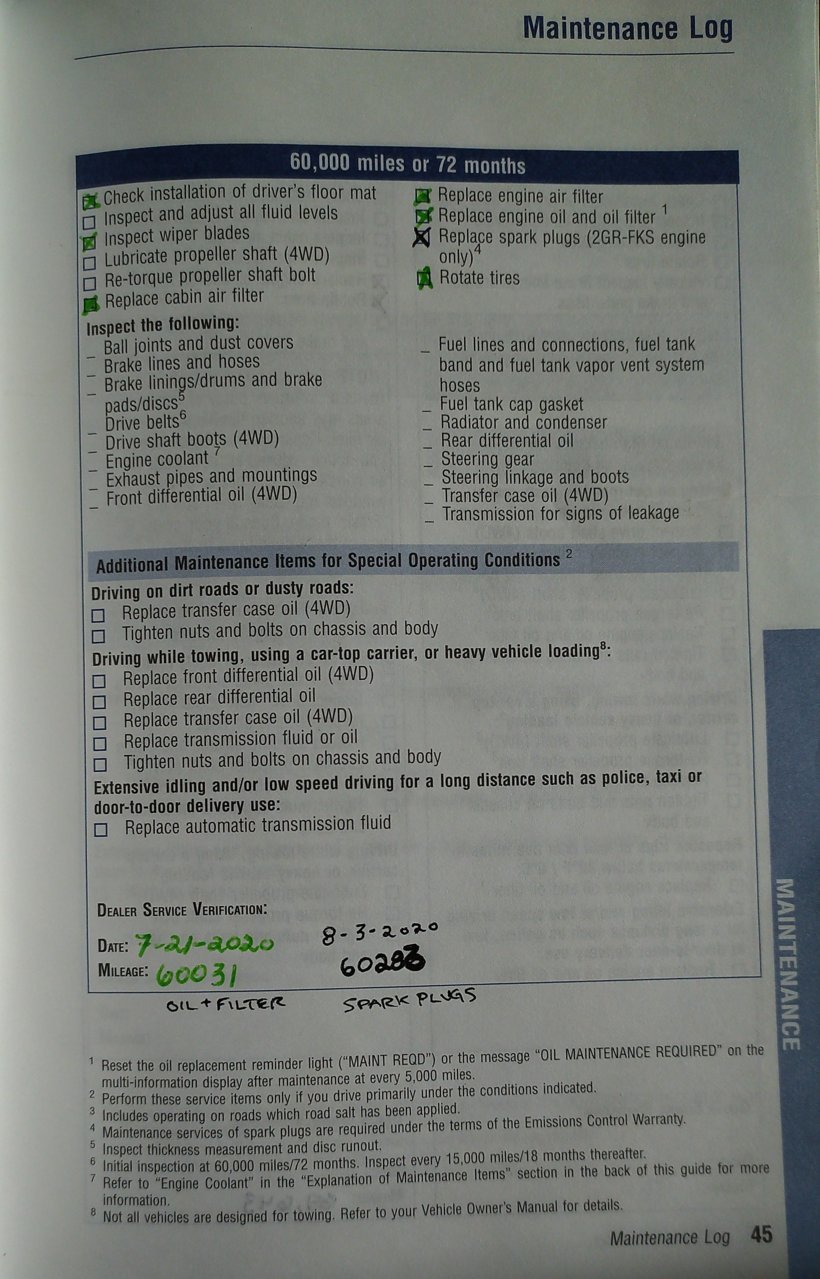 Maintenance Log
60,000 miles or 72 months
Check installation of driver's floor mat
Inspect and adjust all fluid levels
Inspect wiper blades
Lubricate propeller shaft (4WD)
Re-torque propeller shaft bolt
Replace cabin air filter
Replace engine air filter
Replace engine oil and oil filter 1
Replace spark plugs (2GR-FKS engine
only)4
Rotate tires
Inspect the following:
_ Ball joints and dust covers
_ Brake lines and hoses
_ Brake linings/drums and brake
pads/discs5
_ Drive belts6
_ Drive shaft boots (4WD)
_ Engine coolant 7
_ Exhaust pipes and mountings
_ Front differential oil (4WD)
_ Fuel lines and connections, fuel tank
band and fuel tank vapor vent system
hoses
_ Fuel tank cap gasket
_ Radiator and condenser
_ Rear differential oil
_ Steering gear
_ Steering linkage and boots
_ Transfer case oil (4WD)
_ Transmission for signs of leakage
Additional Maintenance Items for Special Operating Conditions 2
Driving on dirt roads or dusty roads:
Replace transfer case oil (4WD)
Tighten nuts and bolts on chassis and body
Driving while towing, using a car-top carrier, or heavy vehicle loading8:
Replace front differential oil (4WD)
Replace rear differential oil
Replace transfer case oil (4WD)
Replace transmission fluid or oil
Tighten nuts and bolts on chassis and body
Extensive idling and/or low speed driving for a long distance such as police, taxi or
door-to-door delivery use:
Replace automatic transmission fluid
DEALER SERVICE VERIFICATION:
DATE: 7-21-2020 8-3-2020
MILEAGE: 60031 60283
OIL + FILTER SPARK PLUGS
MAINTENANCE
1 Reset the oil replacement reminder light ("MAINT REQD") or the message "OIL MAINTENANCE REQUIRED" on the
multi-information display after maintenance at every 5,000 miles.
2 Perform these service items only if you drive primarily under the conditions indicated.
3 Includes operating on roads which road salt has been applied.
4 Maintenance services of spark plugs are required under the terms of the Emissions Control Warranty.
5 Inspect thickness measurement and disc runout.
6 Initial inspection at 60,000 miles/72 months. Inspect every 15,000 miles/18 months thereafter.
7 Refer to "Engine Coolant" in the "Explanation of Maintenance Items" section in the back of this guide for more
information.
8 Not all vehicles are designed for towing. Refer to your Vehicle Owner's Manual for details.
Maintenance Log 45